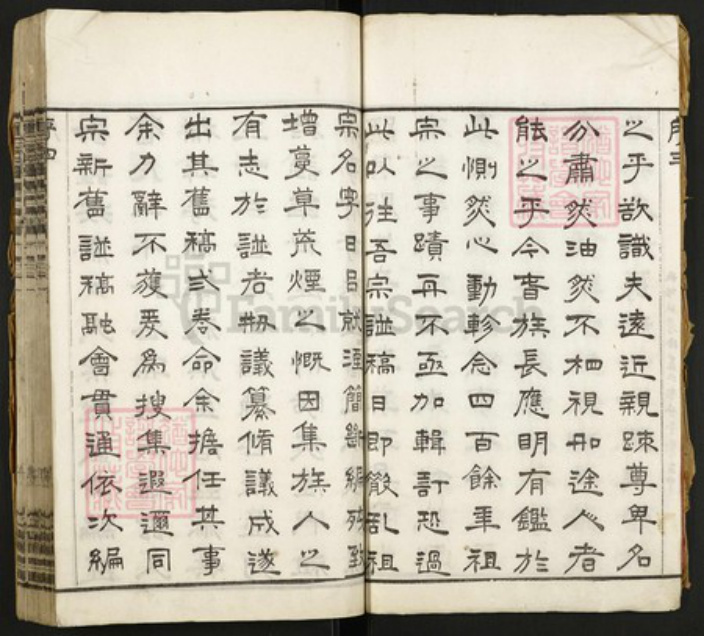 序三
之乎欲識夫遠近親踈尊卑名
分肅然油然不相視如途人者
能之乎今春族長應明有鑑於
此惻然心動軫念四百餘年祖
宗之事蹟再不亟加輯訂恐過
此以往吾宗譜稿日即散亂祖
宗名字日呂就湮簡斷編殘致
增蔓草荒煙之慨因集族人之
有志於譜者刱議纂脩議成遂
出其舊稿弍卷命余擔任其事
余力辭不獲爰為搜集遐邇同
宗新舊譜稿融會貫通依次編
序四
FamilySearch